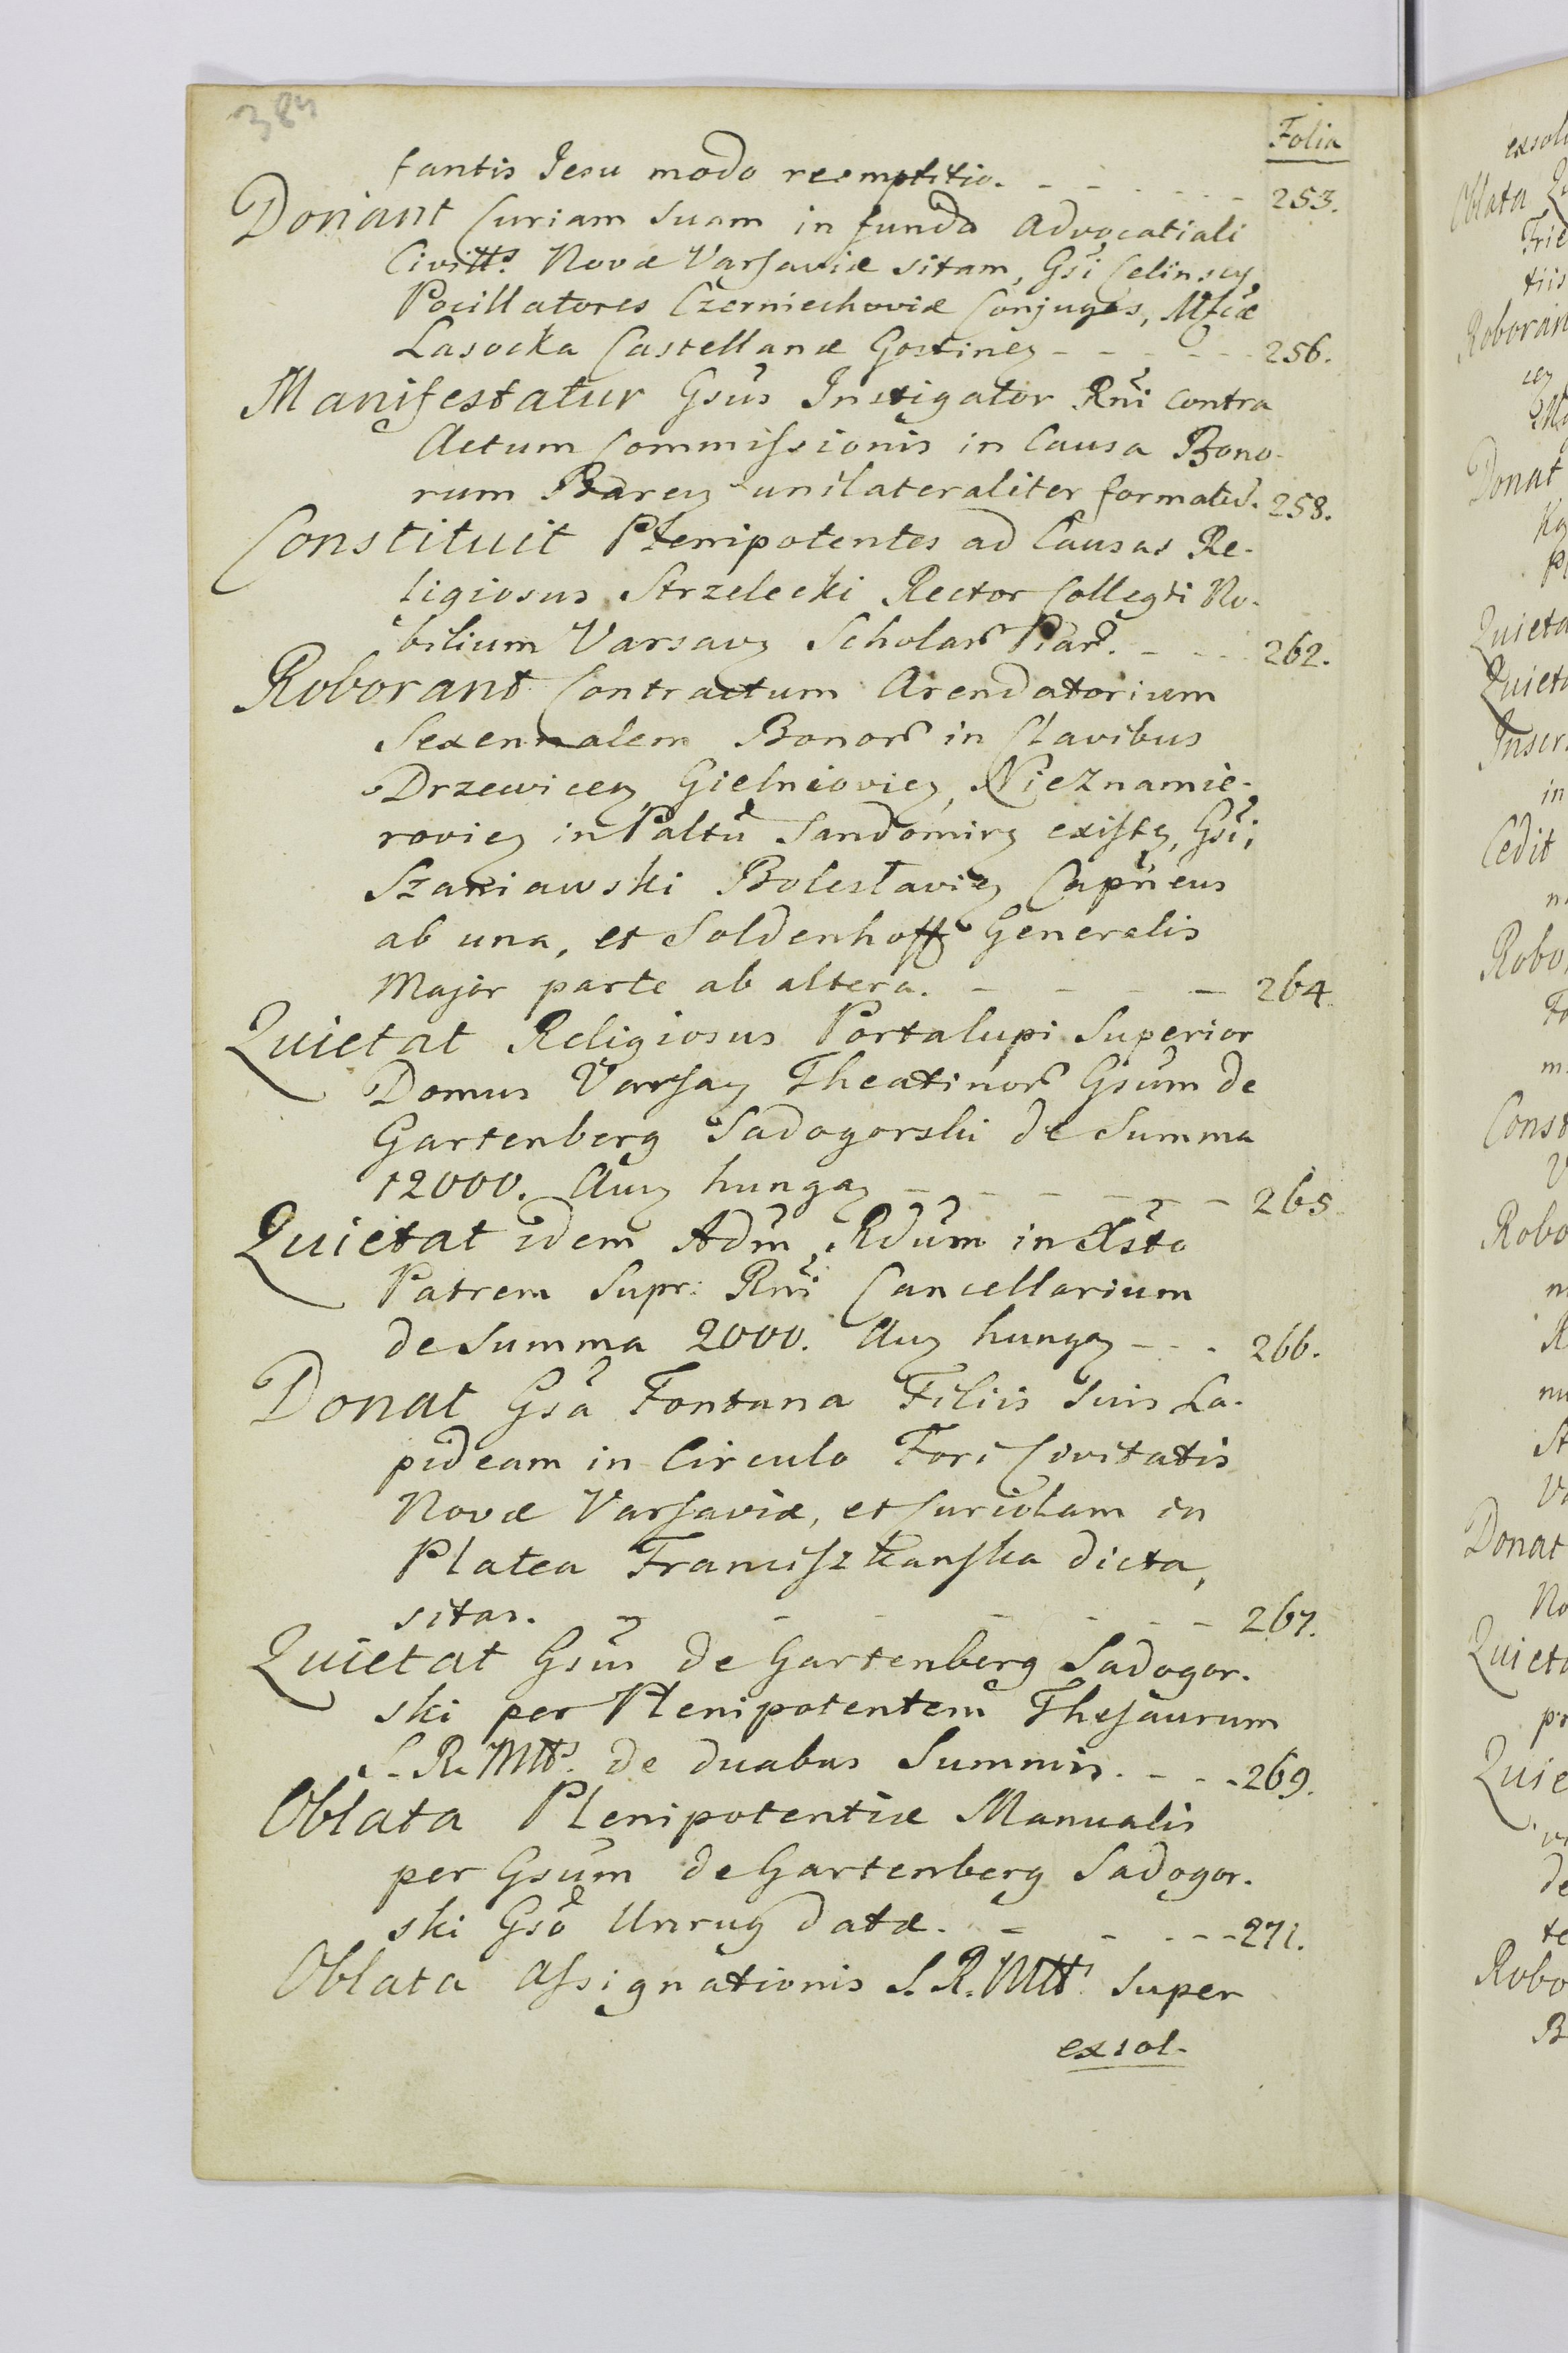 384
Folia
fantis Jesu modo reemptitio. - - - - - - 253.
Donant Curiam suam in fundo Advocatiali
Civitts Novæ Varsaviæ sitam, Gsi Celinscy
Pocillatores Czerniechoviæ Conjuges, Mfcæ
Lasocka Castellanæ Gostiney - - - - - 256.
Manifestatur Gsus Instigator Rni contra
Actum Commissionis in Causa Bono-
rum Barey unilateraliter formatu. 258.
Constituit Plenipotentes ad Causas Re-
ligiosus Strzelecki Rector Collegii No-
bilium Varsavy Scholar Piar. - - - 262.
Roborant Contractum Arendatorium
Sexennalem Bonor in Clavibus
Drzewicey, Gielnioviey, Nieznamie-
roviey in Paltu Sandomiry existy, Gsi,
Szaniawski Boleslaviey Capneus
ab una, et Soldenhoff Generalis
Major parte ab altera. - - - - - 264.
Quietat Religiosus Portalupi Superior
Domus Varsay Theatinor Gsum de
Gartenberg Sadogorski de Summa
12000. Aury hungay - - - - - - 265.
Quietat idem Adm Rdum in Xsto
Patrem Supr: Rni Cancellarium
de Summa 2000. Auy hungay - - - 266.
Donat Gsa Fontana Filiis Suis La-
pideam in Circulo Fori Civitatis
Novæ Varsaviæ, et Curiolam in
Platea Franciszkanska dicta,
sitas. - - - - - - - 267.
Quietat Gsus de Gartenberg Sadogor-
ski per Plenipotentem Thesaurum
S. R. Mtts. de duabus Summis. - - - 269.
Oblata Plenipotentiæ Manualis
per Gsum de Gartenberg Sadogor-
ski Gso Unrug datæ. - - - - - 271.
Oblata Assignationis S. R. Mtts. super
exsol-
exsol
Oblata
Frie
tiis
Roboran
cey
Donat
Quieta
Quieta
Inscr
in
Cedit
Robo
m
Const
V
Robo
Donat
No
Quieta
pr
Quie
de
te
Robo
B